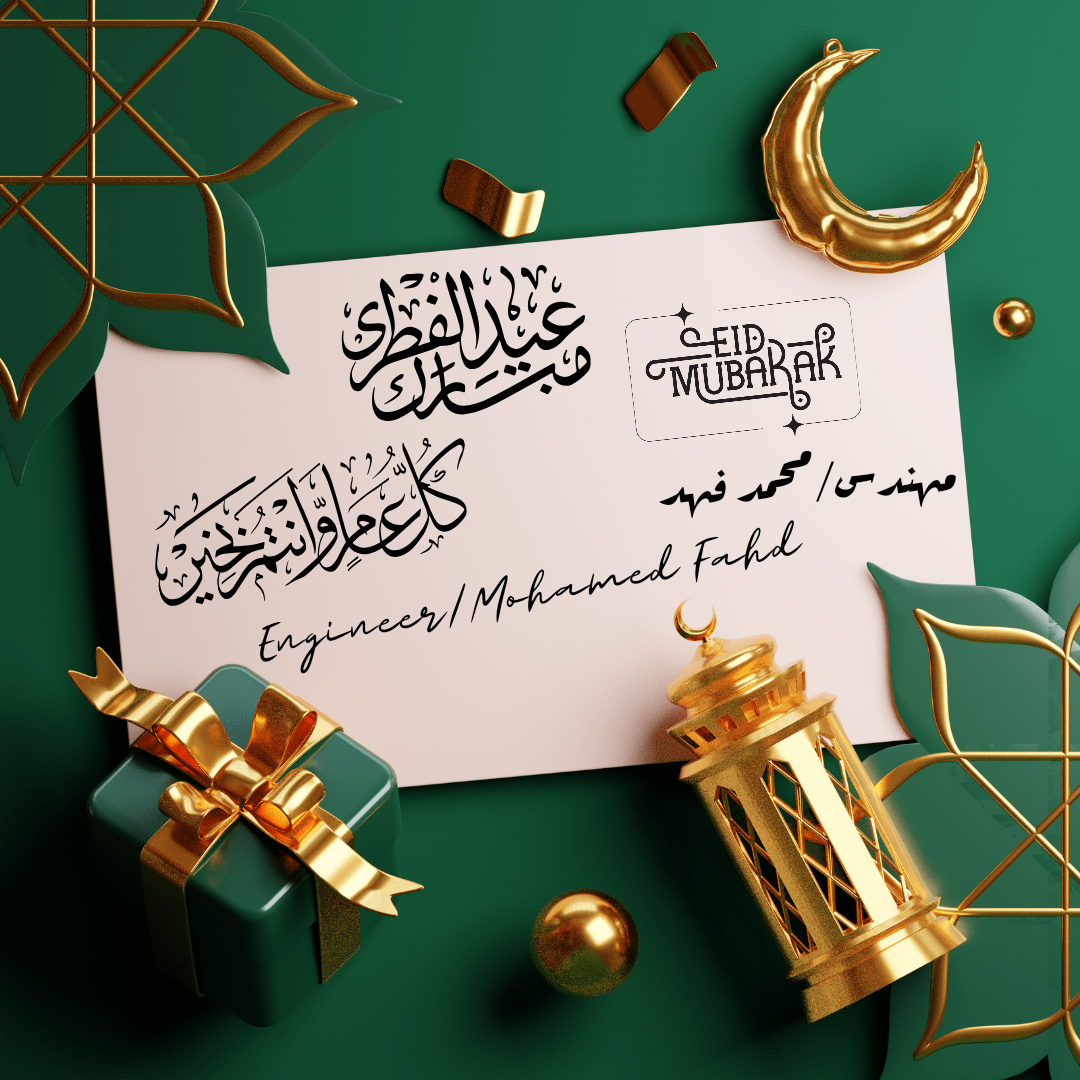 عيد الفطر
مبارك
EID
MUBARAK
كُلُّ عَامٍ وَّانتُمْ بِخَيْر
مهندس/ محمد فهد
Engineer/Mohamed Fahd